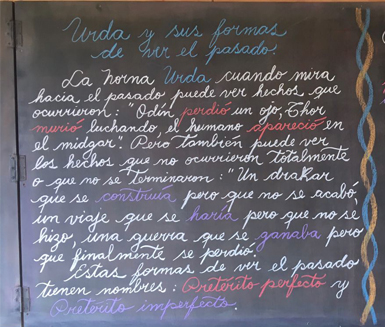 Urda y sus formas
de ver el pasado.
La Norna Urda cuando mira
hacia el pasado puede ver hechos que
ocurrieron: "Odín perdió un ojo, Thor
murió luchando, el humano apareció en
el midgar". Pero también puede ver
los hechos que no ocurrieron totalmente
o que no se terminaron: "Un drakar
que se construía pero que no se acabó,
un viaje que se haría pero que no se
hizo, una guerra que se ganaba pero
que finalmente se perdió".
Estas formas de ver el pasado
tienen nombres: Pretérito perfecto y
Pretérito imperfecto.